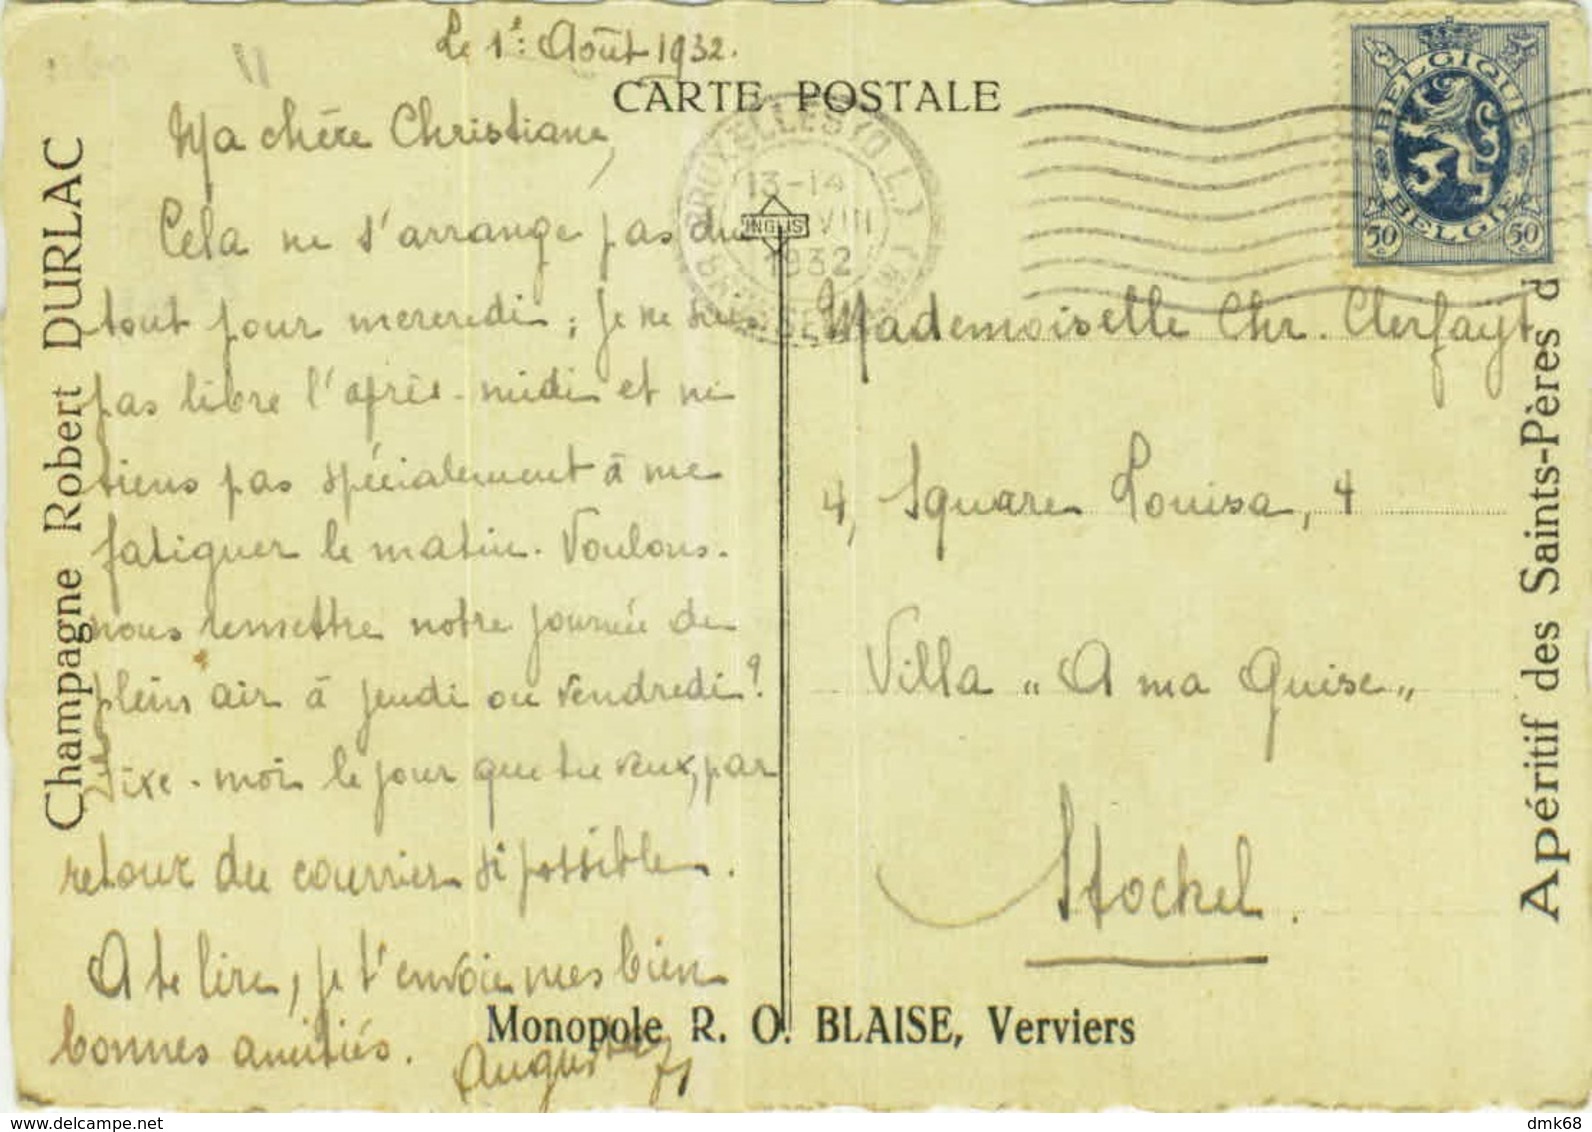 Le 1er Août 1932.
CARTE POSTALE
Ma chère Christiane,
Cela ne s'arrange pas du
tout pour mercredi ; je ne suis
pas libre l'après-midi et ne
tiens pas spécialement à me
fatiguer le matin. Voulons-
nous remettre notre journée de
plein air à jeudi ou vendredi?
Fixe-moi le jour que tu veux, par
retour du courrier si possible.
A te lire, je t'envoie mes bien
bonnes amitiés.
BRUXELLES
13-14
VIII
1932
INGLIS
BELGIQUE
BELGIE
50 50
Mademoiselle Chr. Clerfayt
4, Square Louisa, 4
Villa „A ma Guise„
Stockel.
Champagne Robert DURLAC
Apéritif des Saints-Pères d
Monopole R. O. BLAISE, Verviers
delcampe.net
dmk68